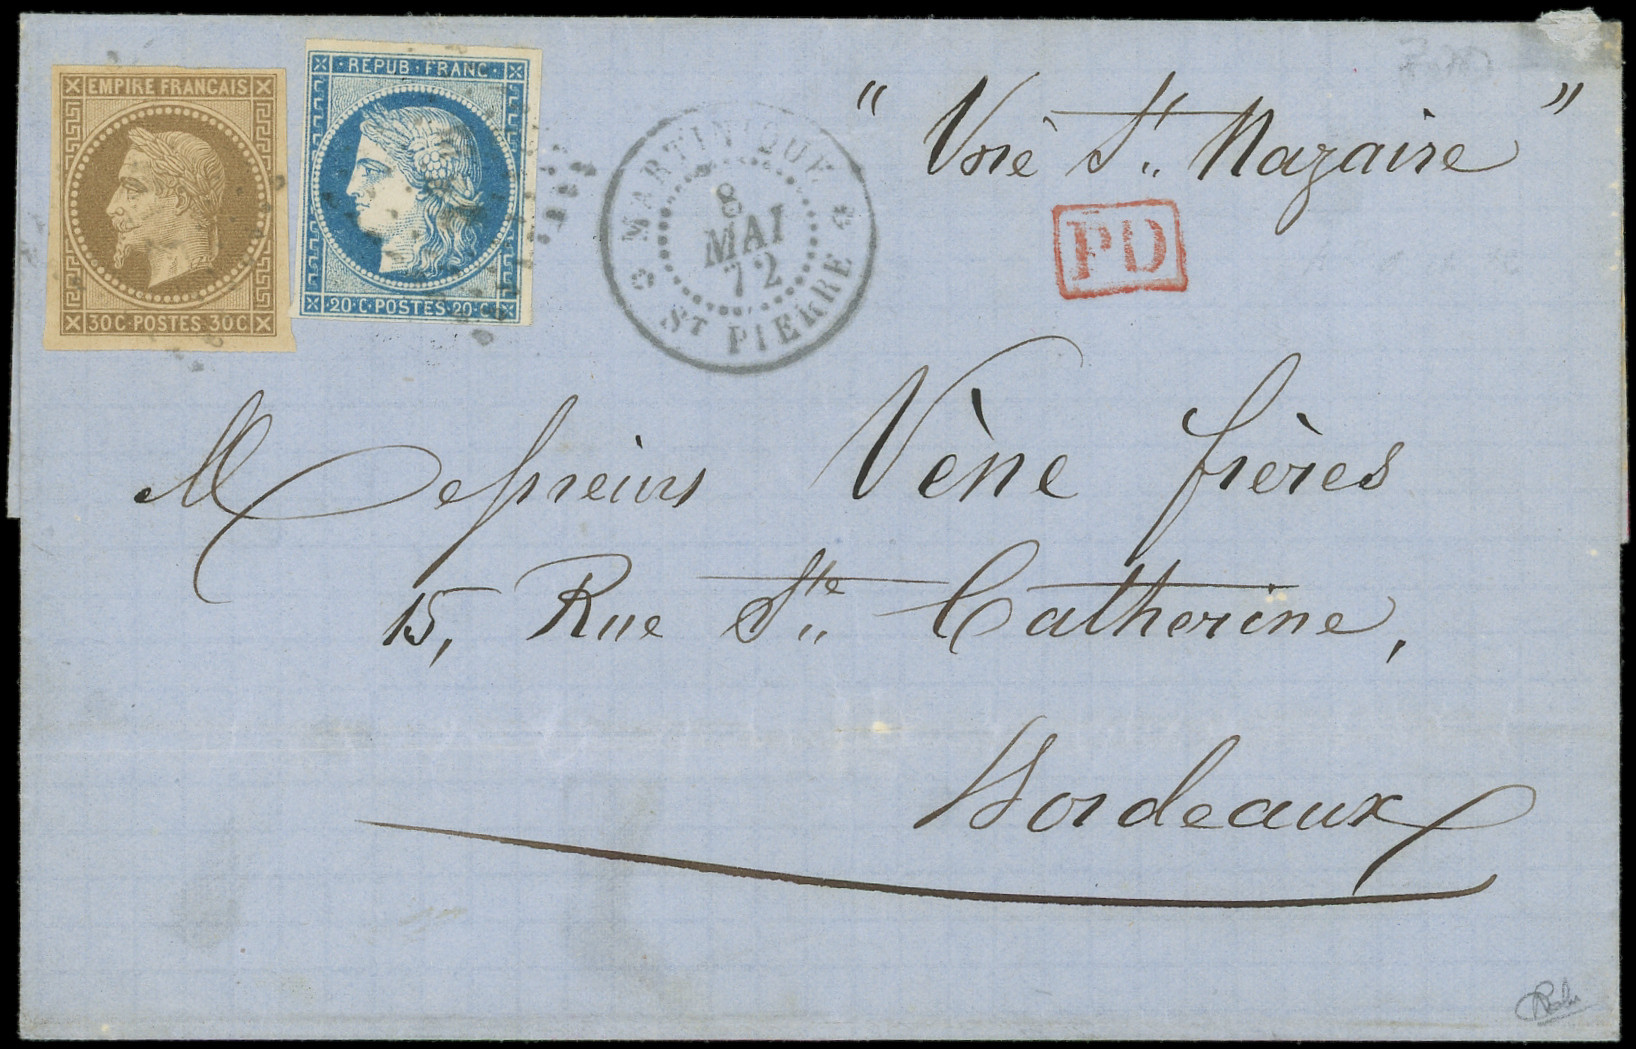 EMPIRE FRANÇAIS
30C·POSTES 30C
· REPUB · FRANC ·
·20·C·POSTES·20·C·
MARTINIQUE
8
MAI
72
ST PIERRE
" Voie St. Nazaire "
PD
Messieurs Vène frères
15, Rue Ste. Catherine,
Bordeaux